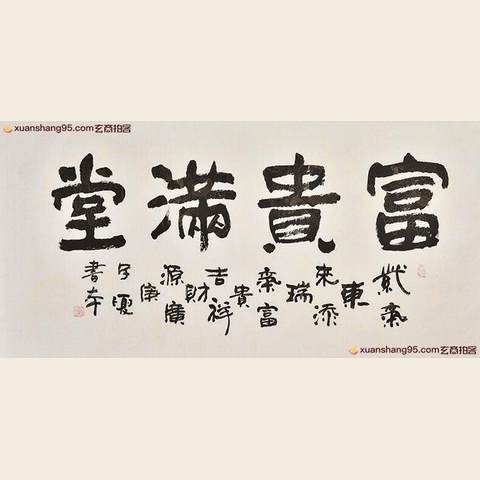 xuanshang95.com玄商拍客
富貴滿堂
紫氣
東
來添
瑞
氣富
貴
吉祥
財
源廣
庚
子夏
書
xuanshang95.com玄商拍客